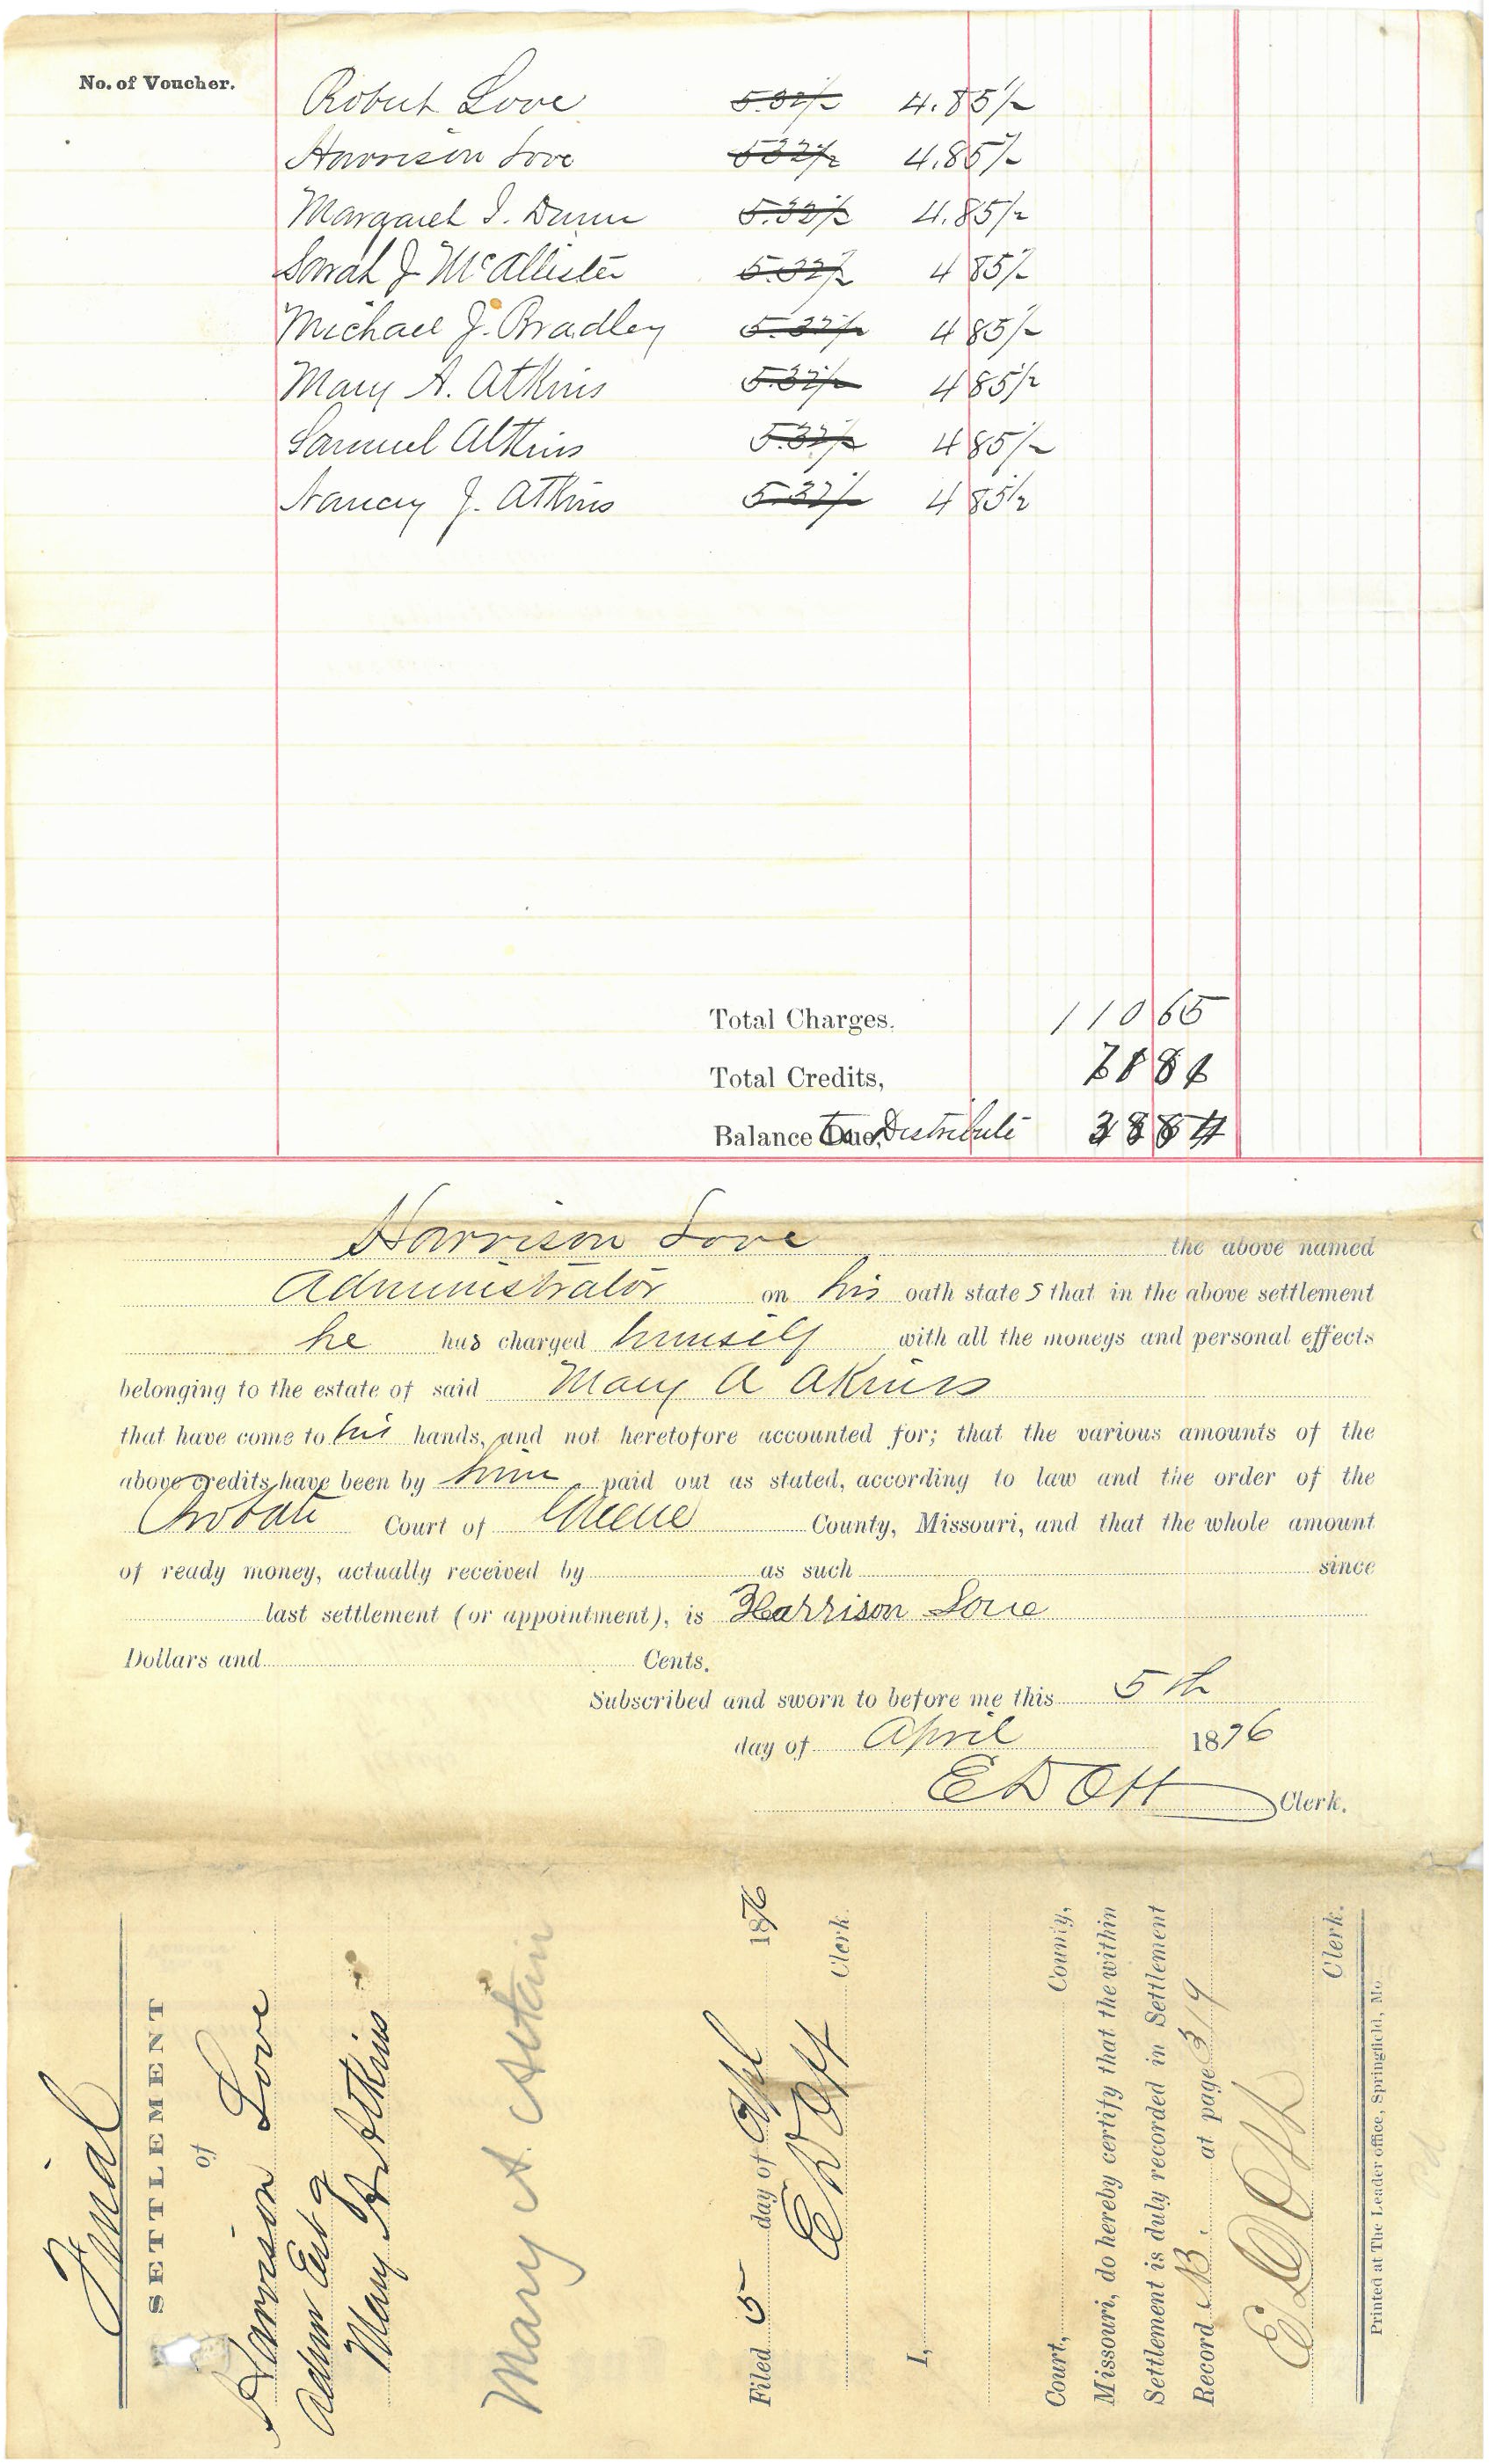 No. of Voucher.
Robert Love 5.32½ 4.85½
Harrison Love 532½ 4.85½
Margaret I. Dunn 5.32½ 4.85½
Sarah J McAllister 5.32½ 4 85½
Michael J. Bradley 5.32½ 4 85½
Mary A. Atkins 5.32½ 4 85½
Samuel Atkins 5.32½ 4 85½
Nancy J. Atkins 5.32½ 4 85½
Total Charges. 110 65
Total Credits, 81
Balance Due, to Distribute 38 84
Harrison Love the above named
Administrator on his oath state s that in the above settlement
he has charged himself with all the moneys and personal effects
belonging to the estate of said Mary A Akins
that have come to his hands, and not heretofore accounted for; that the various amounts of the
above credits have been by him paid out as stated, according to law and the order of the
Probate Court of Greene County, Missouri, and that the whole amount
of ready money, actually received by as such since
last settlement (or appointment), is Harrison Love
Dollars and Cents.
Subscribed and sworn to before me this 5th
day of April 1876
E D Ott Clerk.
Final
SETTLEMENT
of
Harrison Love
Admr Est of
Mary A Atkins
Mary A. Atkin
Filed 5 day of Apl 1876
E D Ott Clerk
I,
Court, County,
Missouri, do hereby certify that the within
Settlement is duly recorded in Settlement
Record B, at page 319
E D Ott
Clerk.
Printed at The Leader office, Springfield, Mo.